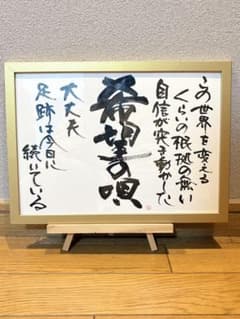 この世界を変える
くらいの根拠の無い
自信が突き動かした
希望の唄
大丈夫
足跡は今日に
続いている